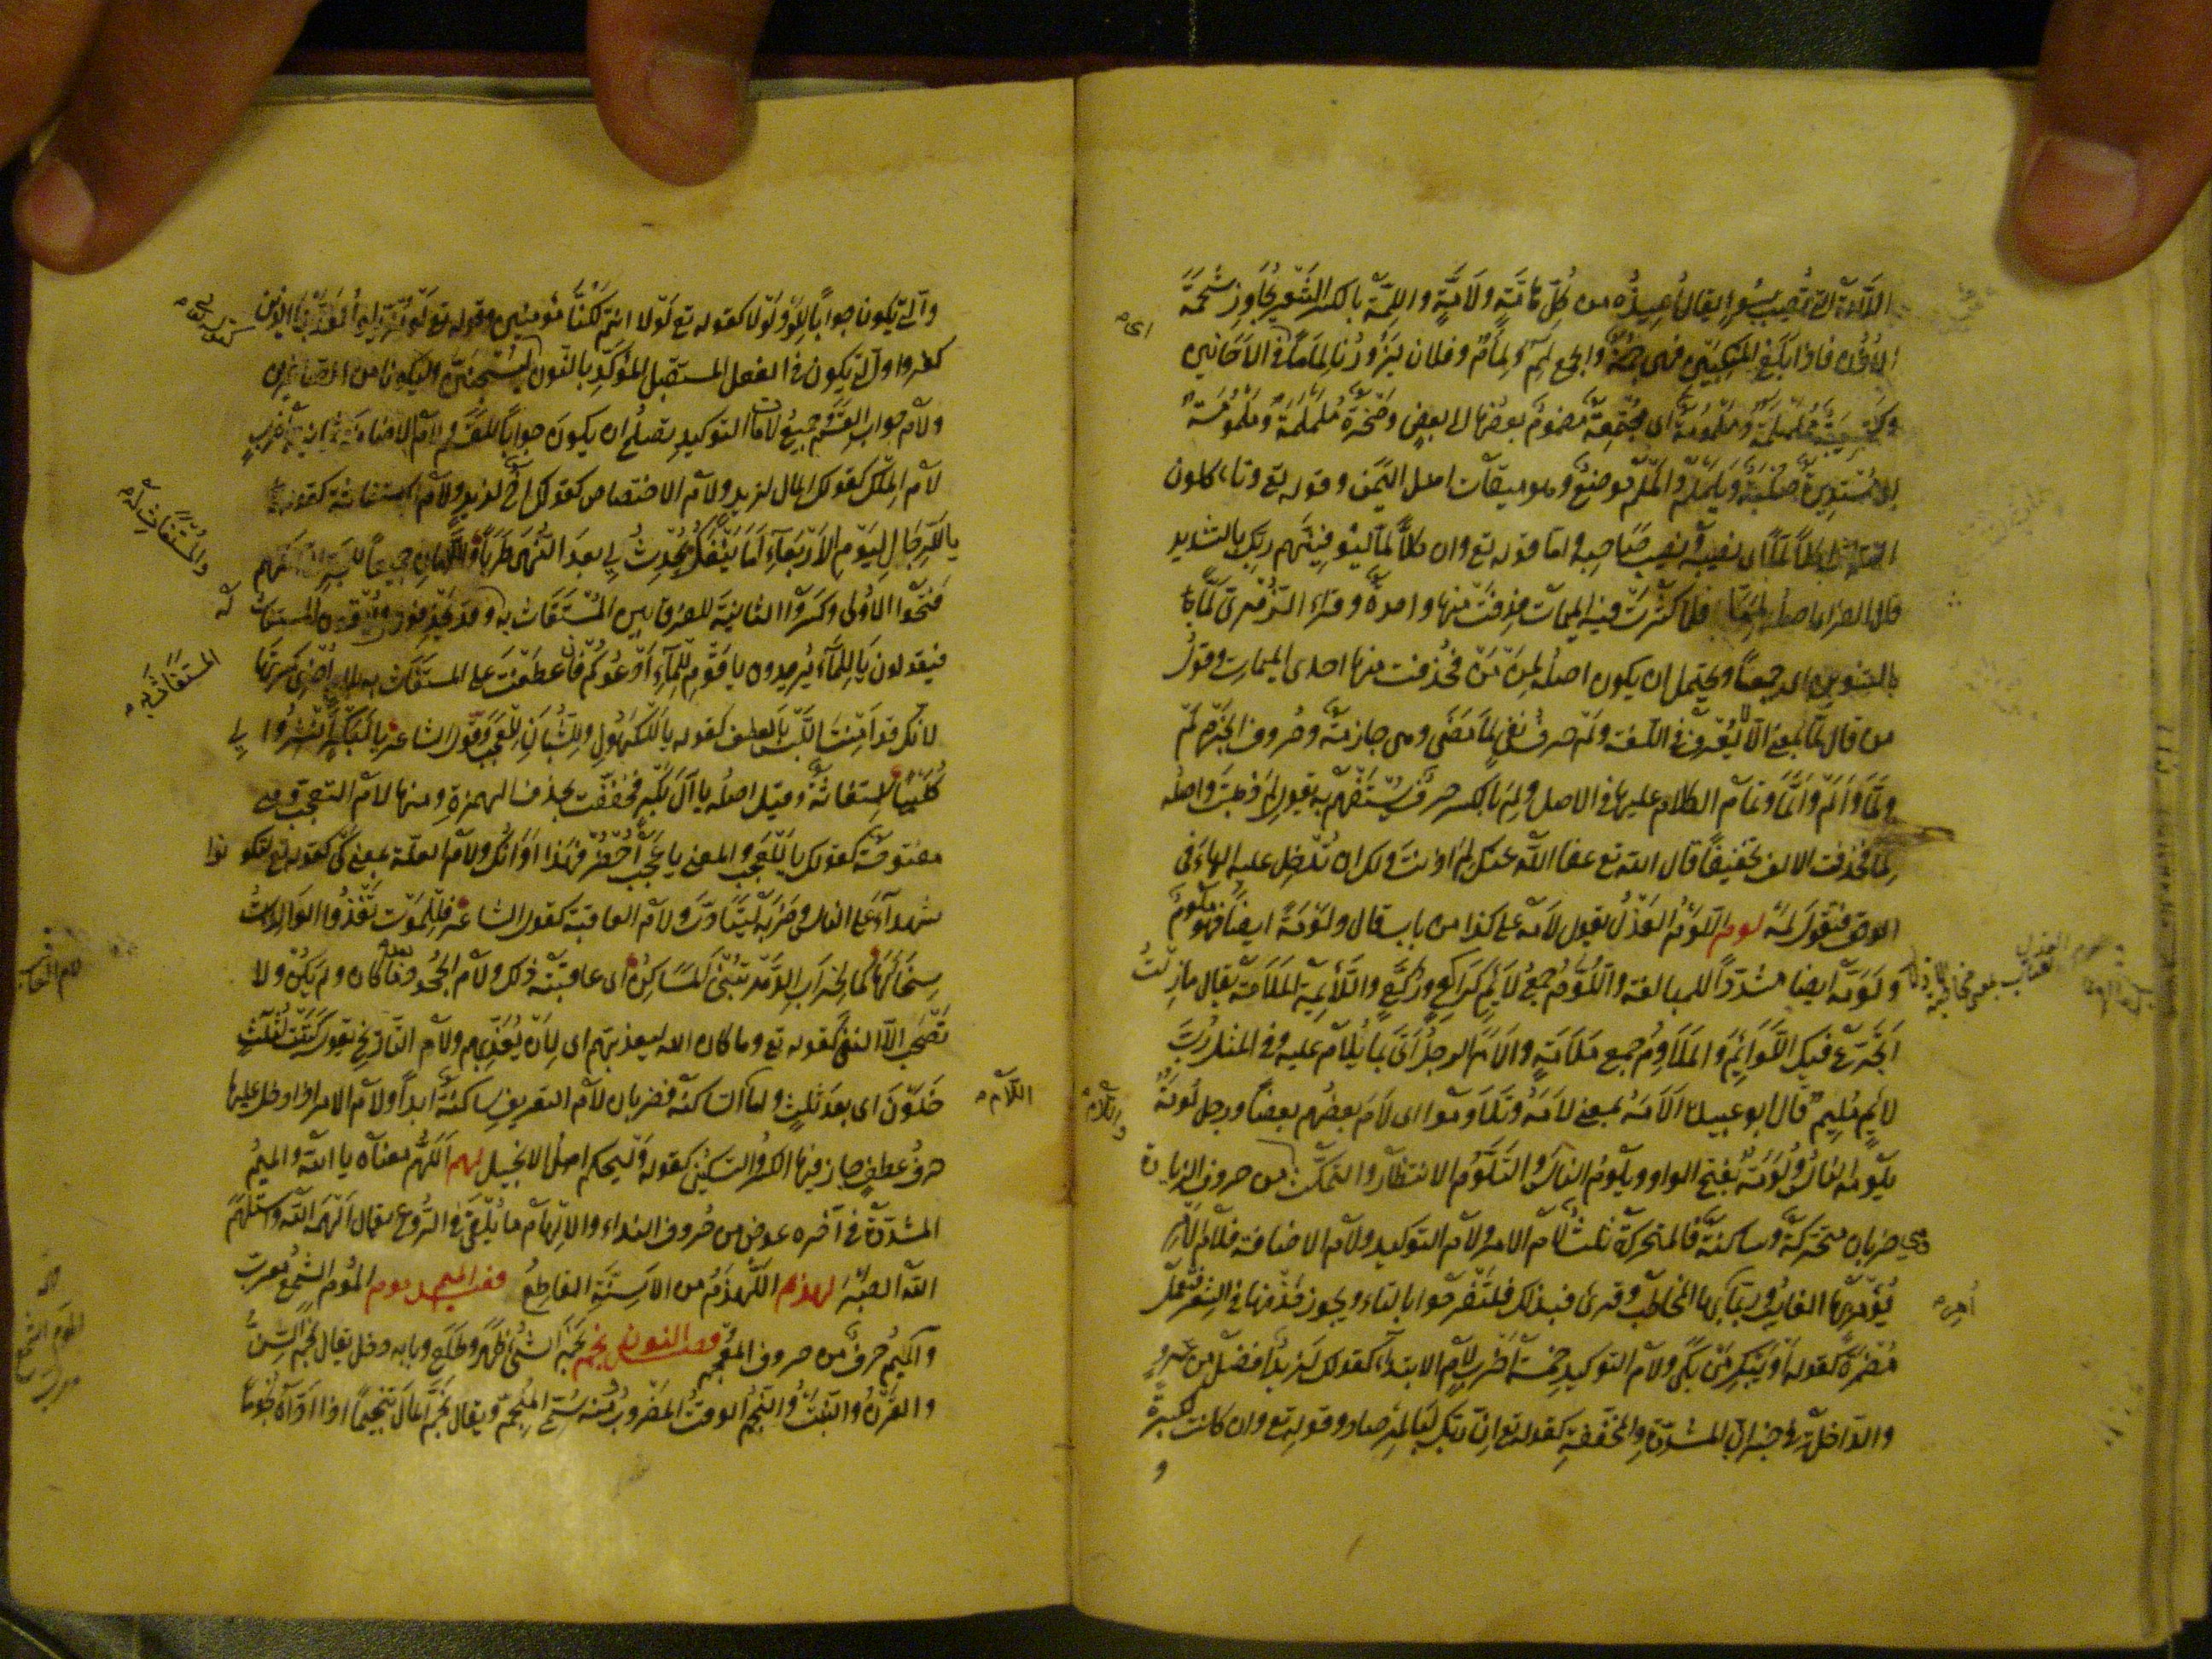 اللامة التي تصيب بسوء يقال اعيذه من كل هامة ولامة واللمة بالكسر الشعر يجاوز شحمة
الاذن فاذا بلغ المنكبين فهي جمة والجمع لمم ولمام وفلان يزورنا لماما اي في الاحايين
وكتيبة ململمة وملمومة اي مجتمعة مضموم بعضها الى بعض وصخرة ململمة وملمومة
اي مستديرة صلبة ويلملم والملم موضع وهو ميقات اهل اليمن وقوله تع وتاكلون
التراث اكلا لما اي نصيبه ونصيب صاحبه واما قوله تع وان كلا لما ليوفينهم ربك بالتشديد
قال الفراء اصله لمما فلما كثرت فيه الميمات حذفت منها واحدة وقراء الزهري لما
بالتنوين اي جميعا ويحتمل ان يكون اصله لمن من فحذفت منها احدى الميمات وقول
من قال لما بمعنى الا لا يعرف في اللغة ولم حرف نفي لما مضى وهي جازمة وحروف الجزم لم
ولما والم والما وتمام الكلام عليها في الاصل ولم بالكسر حرف يستفهم به تقول لم ذهبت واصله
لما فحذفت الالف تخفيفا قال الله تع عفا الله عنك لم اذنت ولك ان تدخل عليه الهاء في
الوقف فتقول لمه لوم اللوم العذل تقول لامه على كذا من باب قال ولومة ايضا فهو ملوم
ولومه ايضا مشددا للمبالغة واللوم جمع لائم كراكع وركع واللائمة الملامة يقال مازلت
اتجرع فيك اللوائم والملاوم جمع ملامة والام الرجل اتى بما يلام عليه وفي المثل رب
لائم مليم قال ابو عبيدة الامه بمعنى لامه وتلاوموا اي لام بعضهم بعضا ورجل لومة
يلومه الناس ولومة بفتح الواو ويلوم الناس والتلوم الانتظار والتمكث من حروف الزيادة
وهي ضربان متحركة وساكنة فالمتحركة ثلث لام الامر ولام التوكيد ولام الاضافة فلام الامر
يؤمر بها الغائب وربما امر بها المخاطب وقرئ فبذلك فلتفرحوا بالتاء ويجوز حذفها في الشعر فتعمل
مضمرة كقوله او يبك من بكى ولام التوكيد خمسة اضرب لام الابتداء كقولك لزيد افضل من عمرو
والداخلة في خبر ان المشددة والمخففة كقوله تع ان ربك لبالمرصاد وقوله تع وان كانت لكبيرة
و
والتي تكون جوابا للو ولولا كقوله تع لولا انتم لكنا مؤمنين وقوله تع لو تزيلوا لعذبنا الذين
كفروا والتي تكون في الفعل المستقبل المؤكد بالنون ليسجنن وليكونا من الصاغرين
ولام جواب القسم جميع لامات التوكيد يصلح ان يكون جوابا للقسم ولام الاضافة ثمانية اضرب
لام الملك كقولك المال لزيد ولام الاختصاص كقولك اخ لزيد ولام الاستغاثة كقوله
يا للرجال ليوم الاربعاء اما ينفك يحدث لي بعد النهى طربا واللامان جميعا للجر لكنهم
فتحوا الاولى وكسروا الثانية للفرق بين المستغاث به وقد يحذفون المستغاث
فيقولون يا للماء يريدون يا قوم للماء ادعوكم فان عطفت على المستغاث به بلام اخرى كسرتها
لانك قد امنت اللبس بالعطف كقوله يا للكهول وللشبان للعجب وقول الشاعر يا لبكر انشروا لي
كليبا استغاثة وقيل اصله يا آل بكر فخففت بحذف الهمزة ومنها لام التعجب وهي
مفتوحة كقولك يا للعجب والمعنى يا عجب احضر فهذا اوانك ولام العلة بمعنى كي كقوله تع لتكونوا
شهداء على الناس وضربه ليتادب ولام العاقبة كقول الشاعر فللموت تغذوا الوالدات
سخالها كما لخراب الدهر تبنى المساكن اي عاقبته ذلك ولام الجحد بعد ما كان ولم يكن ولا
تصحب الا النفي كقوله تع وما كان الله ليعذبهم اي لان يعذبهم ولام التاريخ تقول كتبت لثلث
خلون اي بعد ثلث واما الساكنة فضربان لام التعريف ساكنة ابدا ولام الامر اذا دخل عليها
حرف عطف جاز فيها الكسر والتسكين كقوله وليحكم اهل الانجيل لهم اللهم معناه يا الله والميم
المشددة في آخره عوض من حروف النداء والالهام ما يلقى في الروع يقال الهمه الله واستلهم
الله الصبر لهذم اللهذم من الاسنة القاطع فصل الميم موم الموم الشمع معرب
والميم حرف من حروف المعجم فصل النون نجم نجم الشئ ظهر وطلع وبابه دخل يقال نجم السن
والقرن والنبت والنجم الوقت المضروب ومنه سمي المنجم ويقال نجم المال تنجيما اذا اداه نجوما
اللام
المستغاث به
والمستغاث له